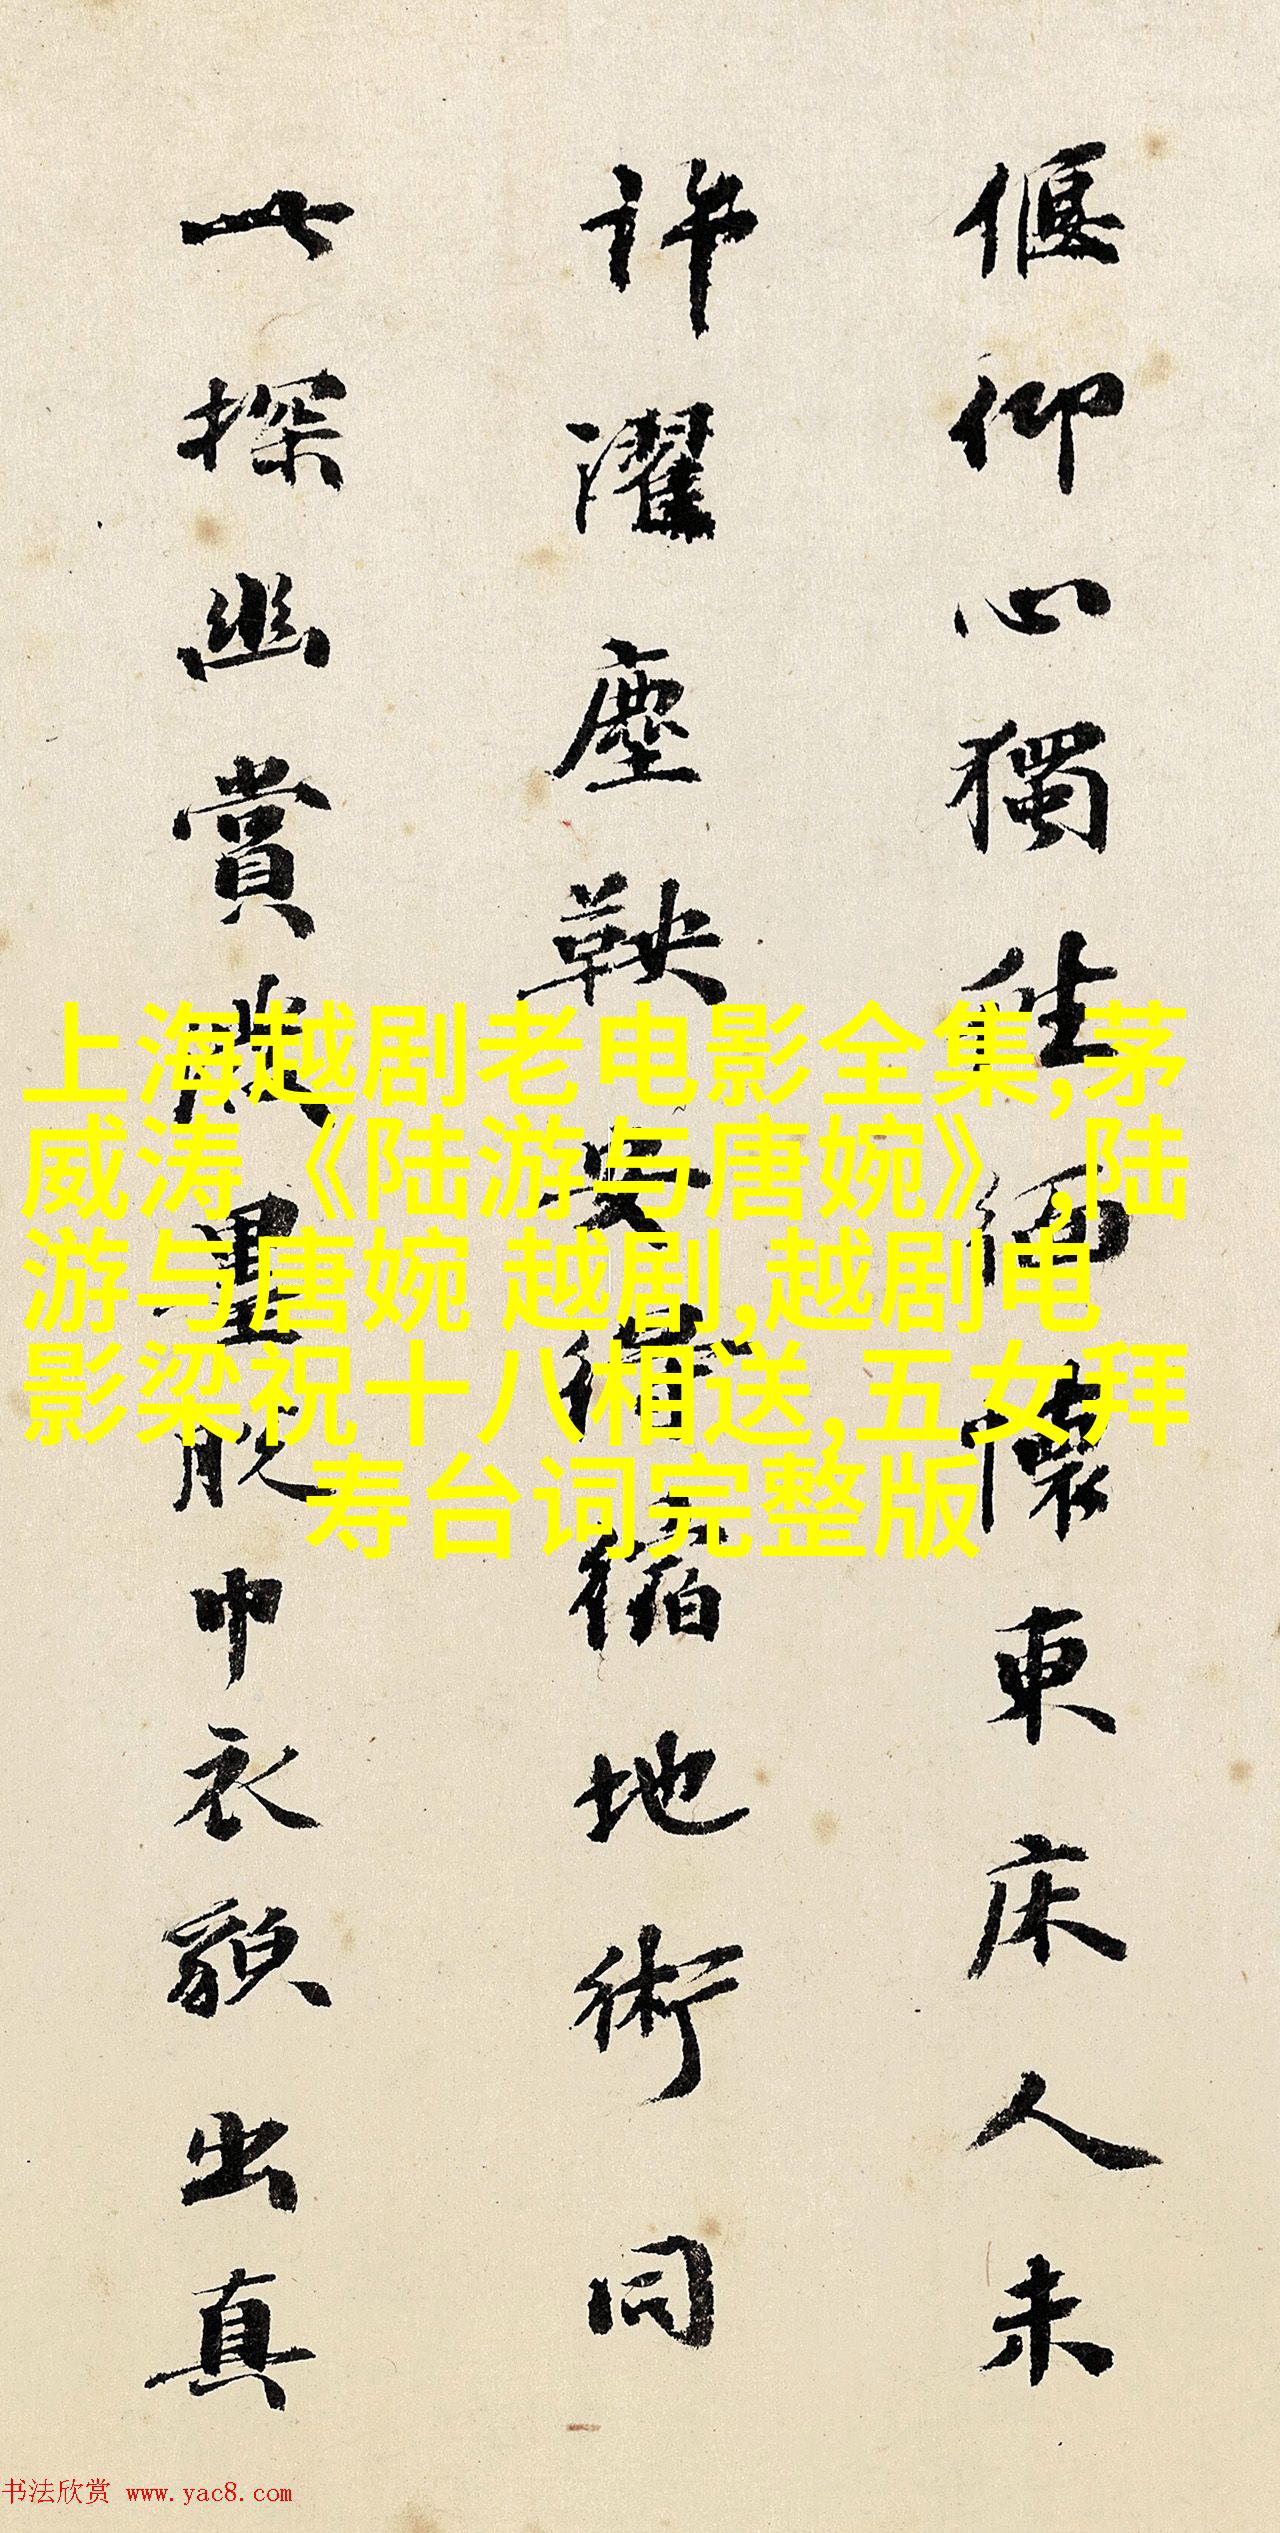 偃仰心獨往緬懷東床人未
許濯塵鞅安得縮地術同
此探幽賞墨脫巾衣貌出真
上海越剧老电影全集,茅
威涛《陆游与唐婉》,陆
游与唐婉 越剧,越剧电
影梁祝十八相送,五女拜
寿台词完整版
书法欣赏 www.yac8.com